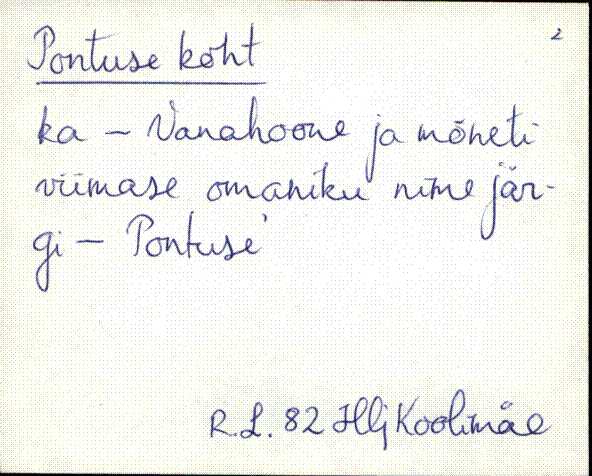 2
Pontuse koht
ka – Vanahoone ja mõneti
viimase omaniku nime jär-
gi – Pontuse'
R.L. 82 Hlj Koolimäe